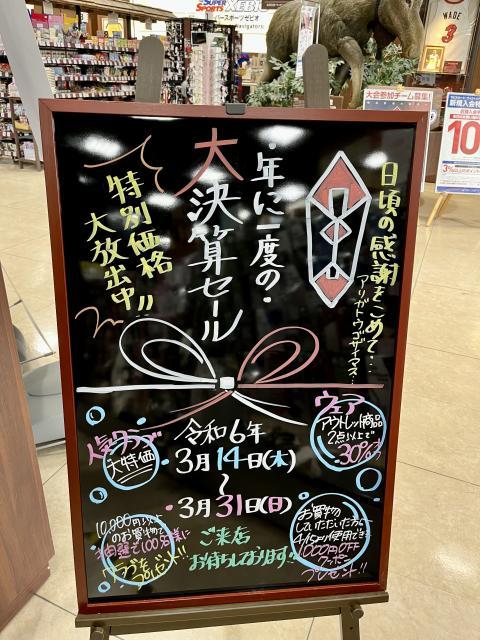 SUPER SPORTS XEBIO
スーパースポーツゼビオ
Navigators
WADE
3
大会参加チーム募集!
新規入会
10
日頃の感謝をこめて…
アリガトウゴザイマス…
・年に一度の・
大決算セール
特別価格
大放出中!!
人気クラブ
大特価
令和6年
3月14日(木)
~
・3月31日(日)
ご来店
お待ちしております!!
ウェア
アウトレット商品
2点以上で
30%
10,000円以上
のお買物で
先着で100名様に
グラブを
プレゼント!!
お買物を
していただいた方に
4/5より使用できる
1000円OFF
クーポン
プレゼント!!